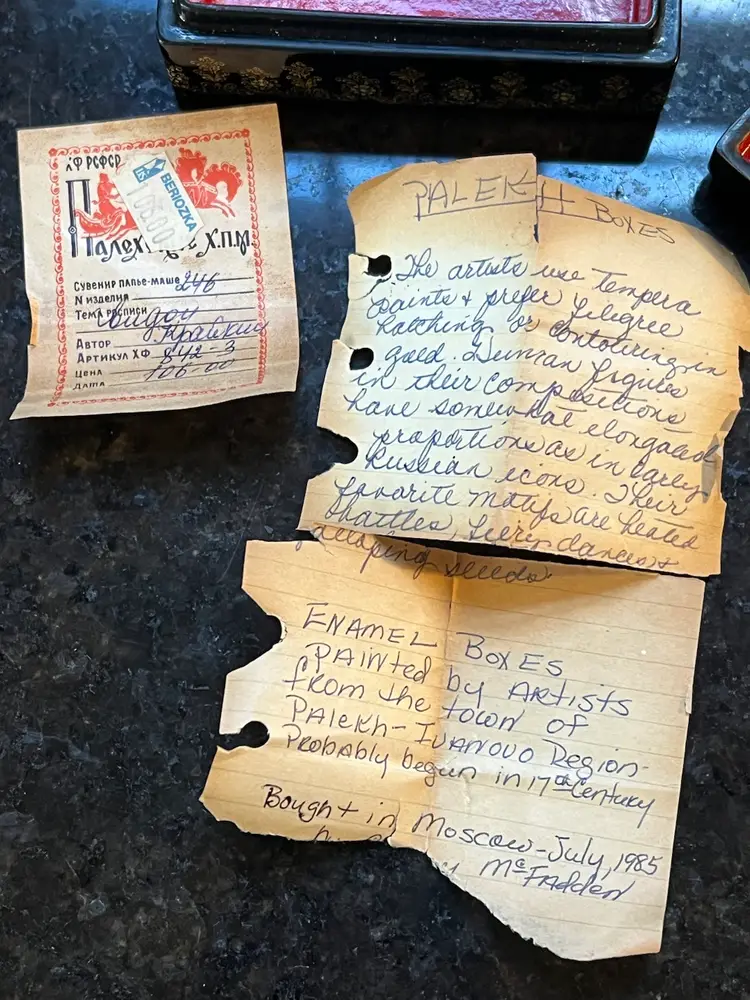 ХФ РСФСР
BERIOZKA
Х.П.М.
Сувенир папье-маше 246
N изделия
Тема росписи
Автор
Артикул ХФ 242-3
Цена 106-00
Дата
PALEKH BOXES
The artists use tempera
paints & prefer filegree
hatching or contouring in
gold. Human figures
in their compositions
have somewhat elongated
proportions as in early
Russian icons. Their
favorite motifs are heated
battles, fiery dances &
galloping steeds.
ENAMEL BOXES
PAINted by ARtists
from the town of
PALEKH-IVANOVO Region-
Probably begun in 17th Century
Bought in Moscow-July, 1985
McFadden